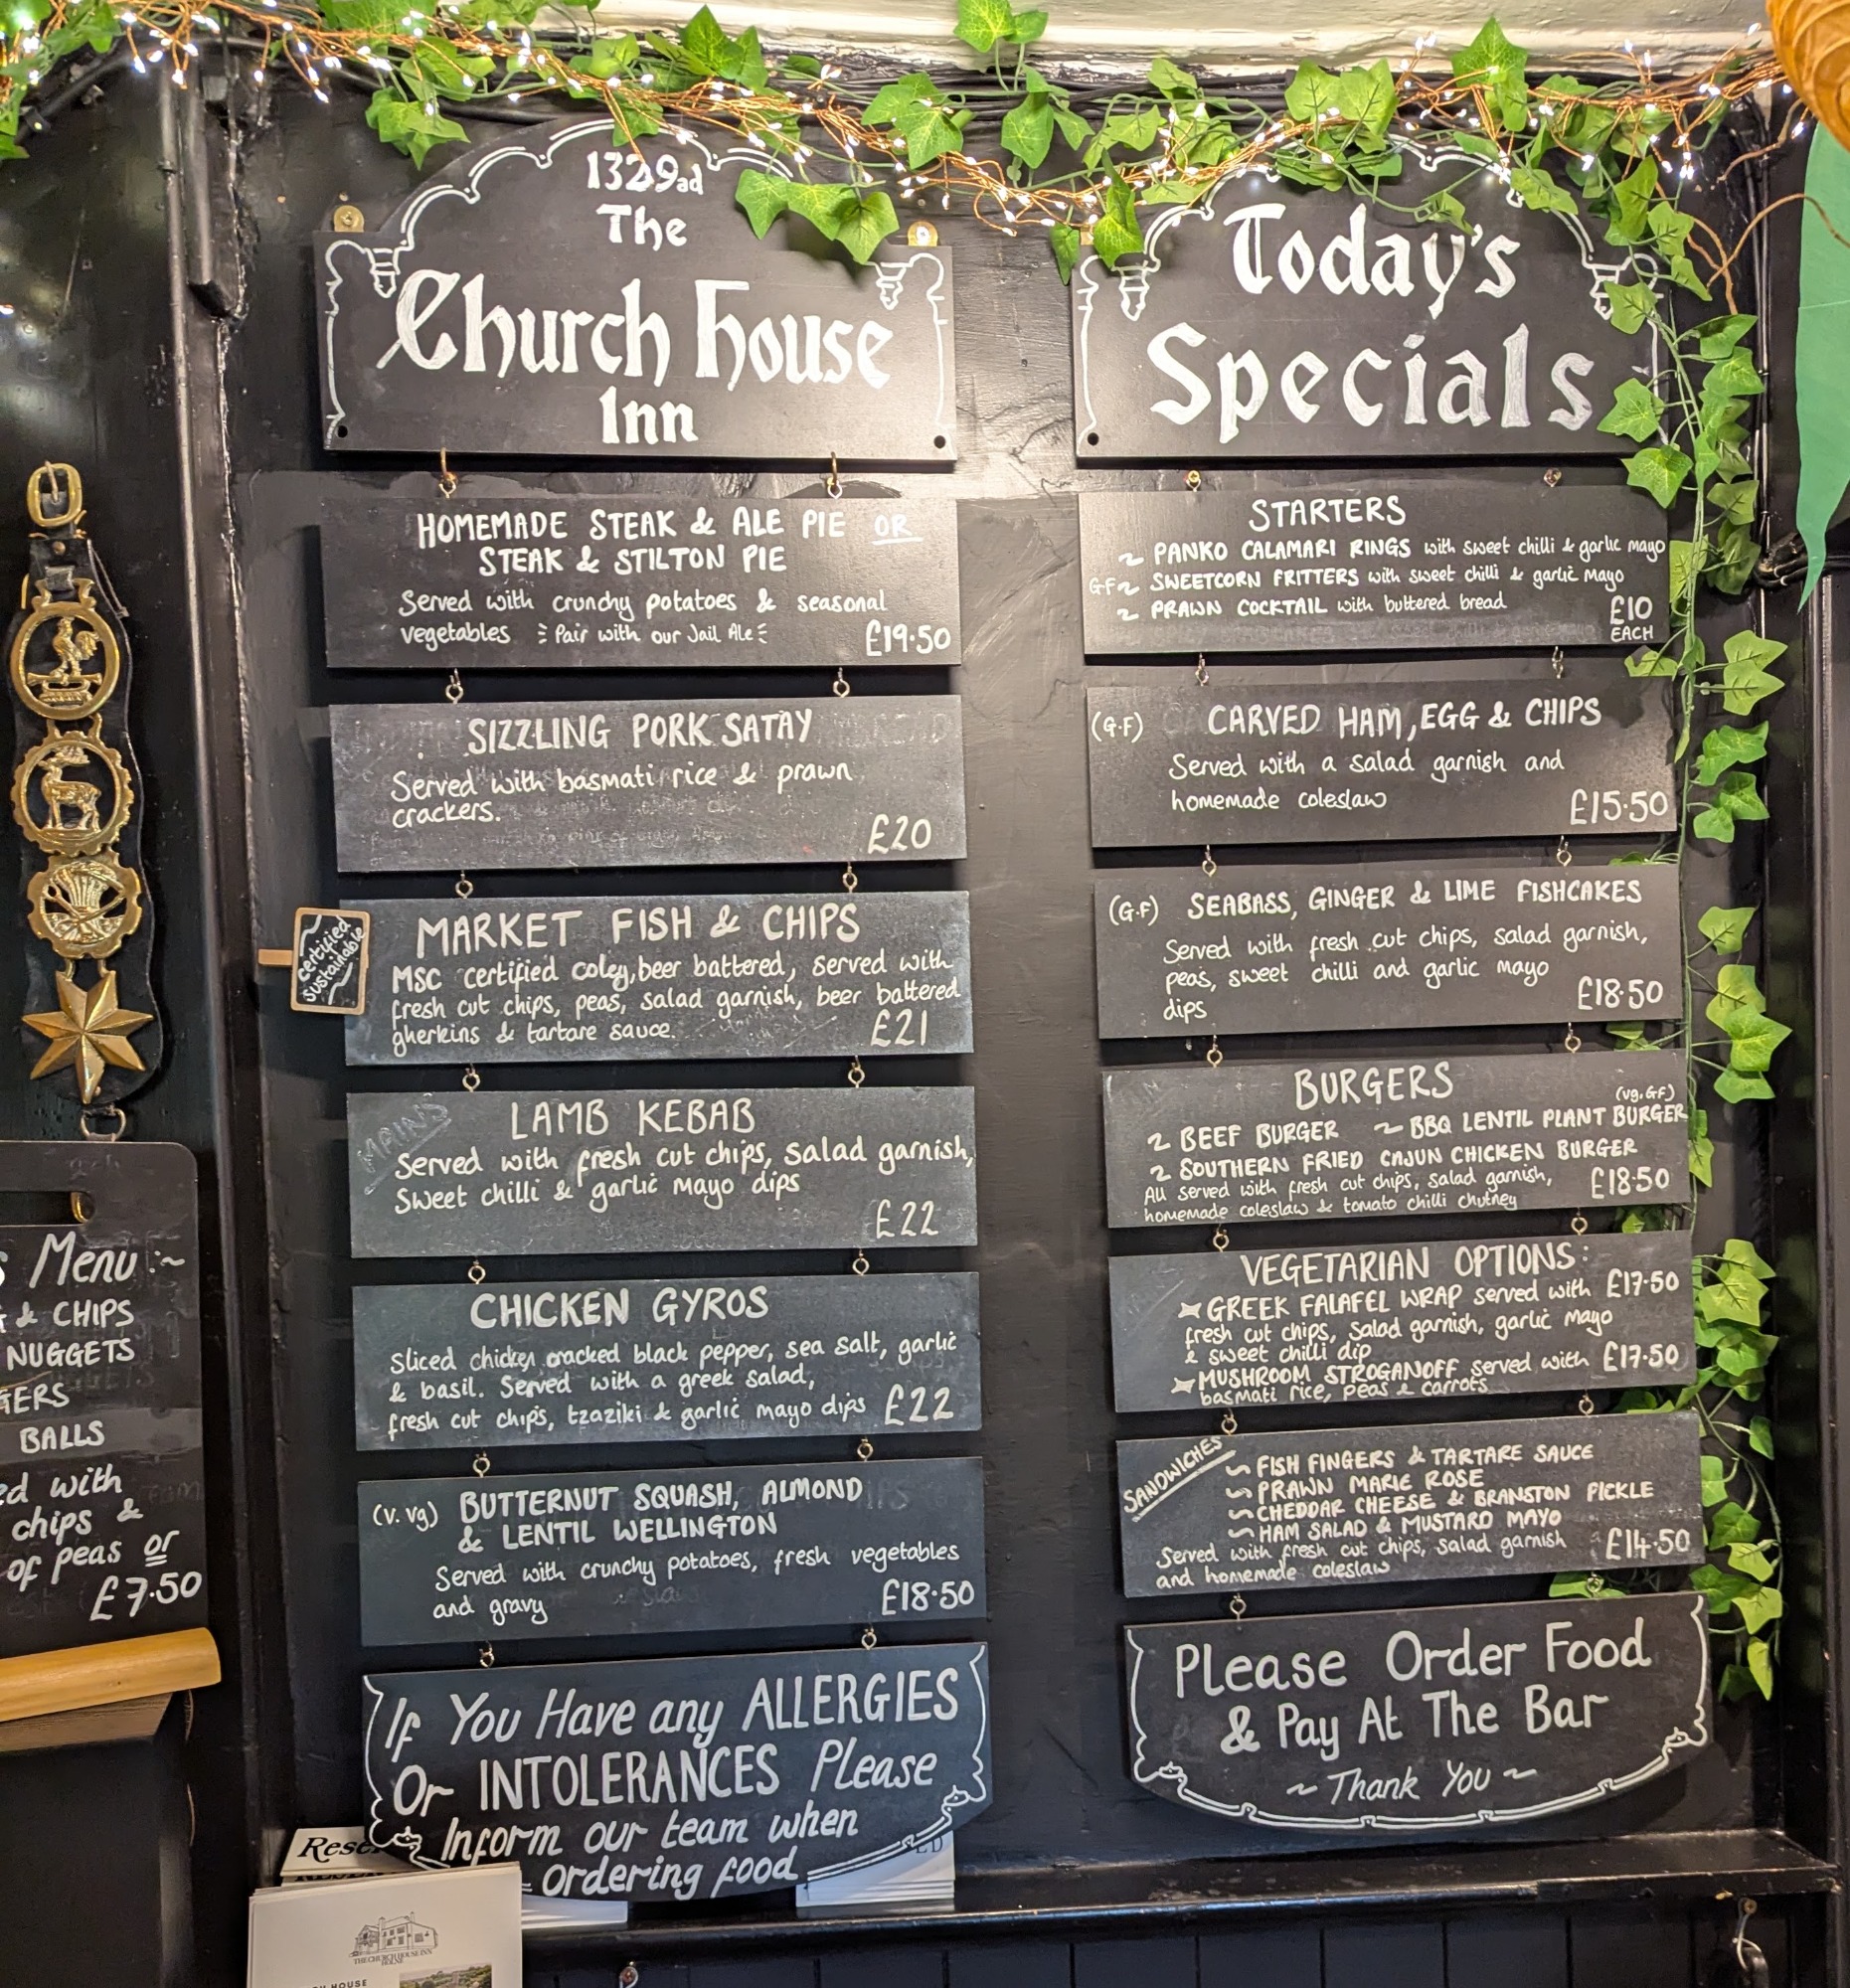 1329ad
The
Church House
Inn
HOMEMADE STEAK & ALE PIE OR
STEAK & STILTON PIE
Served with crunchy potatoes & seasonal
vegetables Pair with our Jail Ale
£19.50
SIZZLING PORK SATAY
Served with basmati rice & prawn
crackers.
£20
certified
sustainable
MARKET FISH & CHIPS
MSC certified coley, beer battered, served with
fresh cut chips, peas, salad garnish, beer battered
gherkins & tartare sauce.
£21
MAINS
LAMB KEBAB
Served with fresh cut chips, salad garnish,
Sweet chilli & garlic mayo dips
£22
CHICKEN GYROS
Sliced chicken cracked black pepper, sea salt, garlic
& basil. Served with a greek salad,
fresh cut chips, tzaziki & garlic mayo dips £22
(v. vg) BUTTERNUT SQUASH, ALMOND
& LENTIL WELLINGTON
Served with crunchy potatoes, fresh vegetables
and gravy
£18.50
If You Have any ALLERGIES
Or INTOLERANCES Please
Inform our team when
ordering food
Today's
Specials
STARTERS
~ PANKO CALAMARI RINGS with sweet chilli & garlic mayo
GF ~ SWEETCORN FRITTERS with sweet chilli & garlic Mayo
~ PRAWN COCKTAIL with buttered bread
£10
EACH
(G.F) CARVED HAM, EGG & CHIPS
Served with a salad garnish and
homemade coleslaw
£15.50
(G.F) SEABASS, GINGER & LIME FISHCAKES
Served with fresh cut chips, salad garnish,
peas, sweet chilli and garlic mayo
dips
£18.50
BURGERS
(vg, GF)
~ BEEF BURGER ~ BBQ LENTIL PLANT BURGER
~ SOUTHERN FRIED CAJUN CHICKEN BURGER
All served with fresh cut chips, salad garnish,
homemade coleslaw & tomato chilli chutney
£18.50
VEGETARIAN OPTIONS:
GREEK FALAFEL WRAP served with £17.50
fresh cut chips, salad garnish, garlic mayo
& sweet chilli dip
MUSHROOM STROGANOFF served with £17.50
basmati rice, peas & carrots
SANDWICHES
~ FISH FINGERS & TARTARE SAUCE
~ PRAWN MARIE ROSE
~ CHEDDAR CHEESE & BRANSTON PICKLE
~ HAM SALAD & MUSTARD MAYO
Served with fresh cut chips, salad garnish
and homemade coleslaw
£14.50
Please Order Food
& Pay At The Bar
~ Thank You ~
Menu :~
& CHIPS
NUGGETS
BALLS
with
chips &
of peas or
£7.50
THE CHURCH HOUSE INN
HOLNE
HOUSE